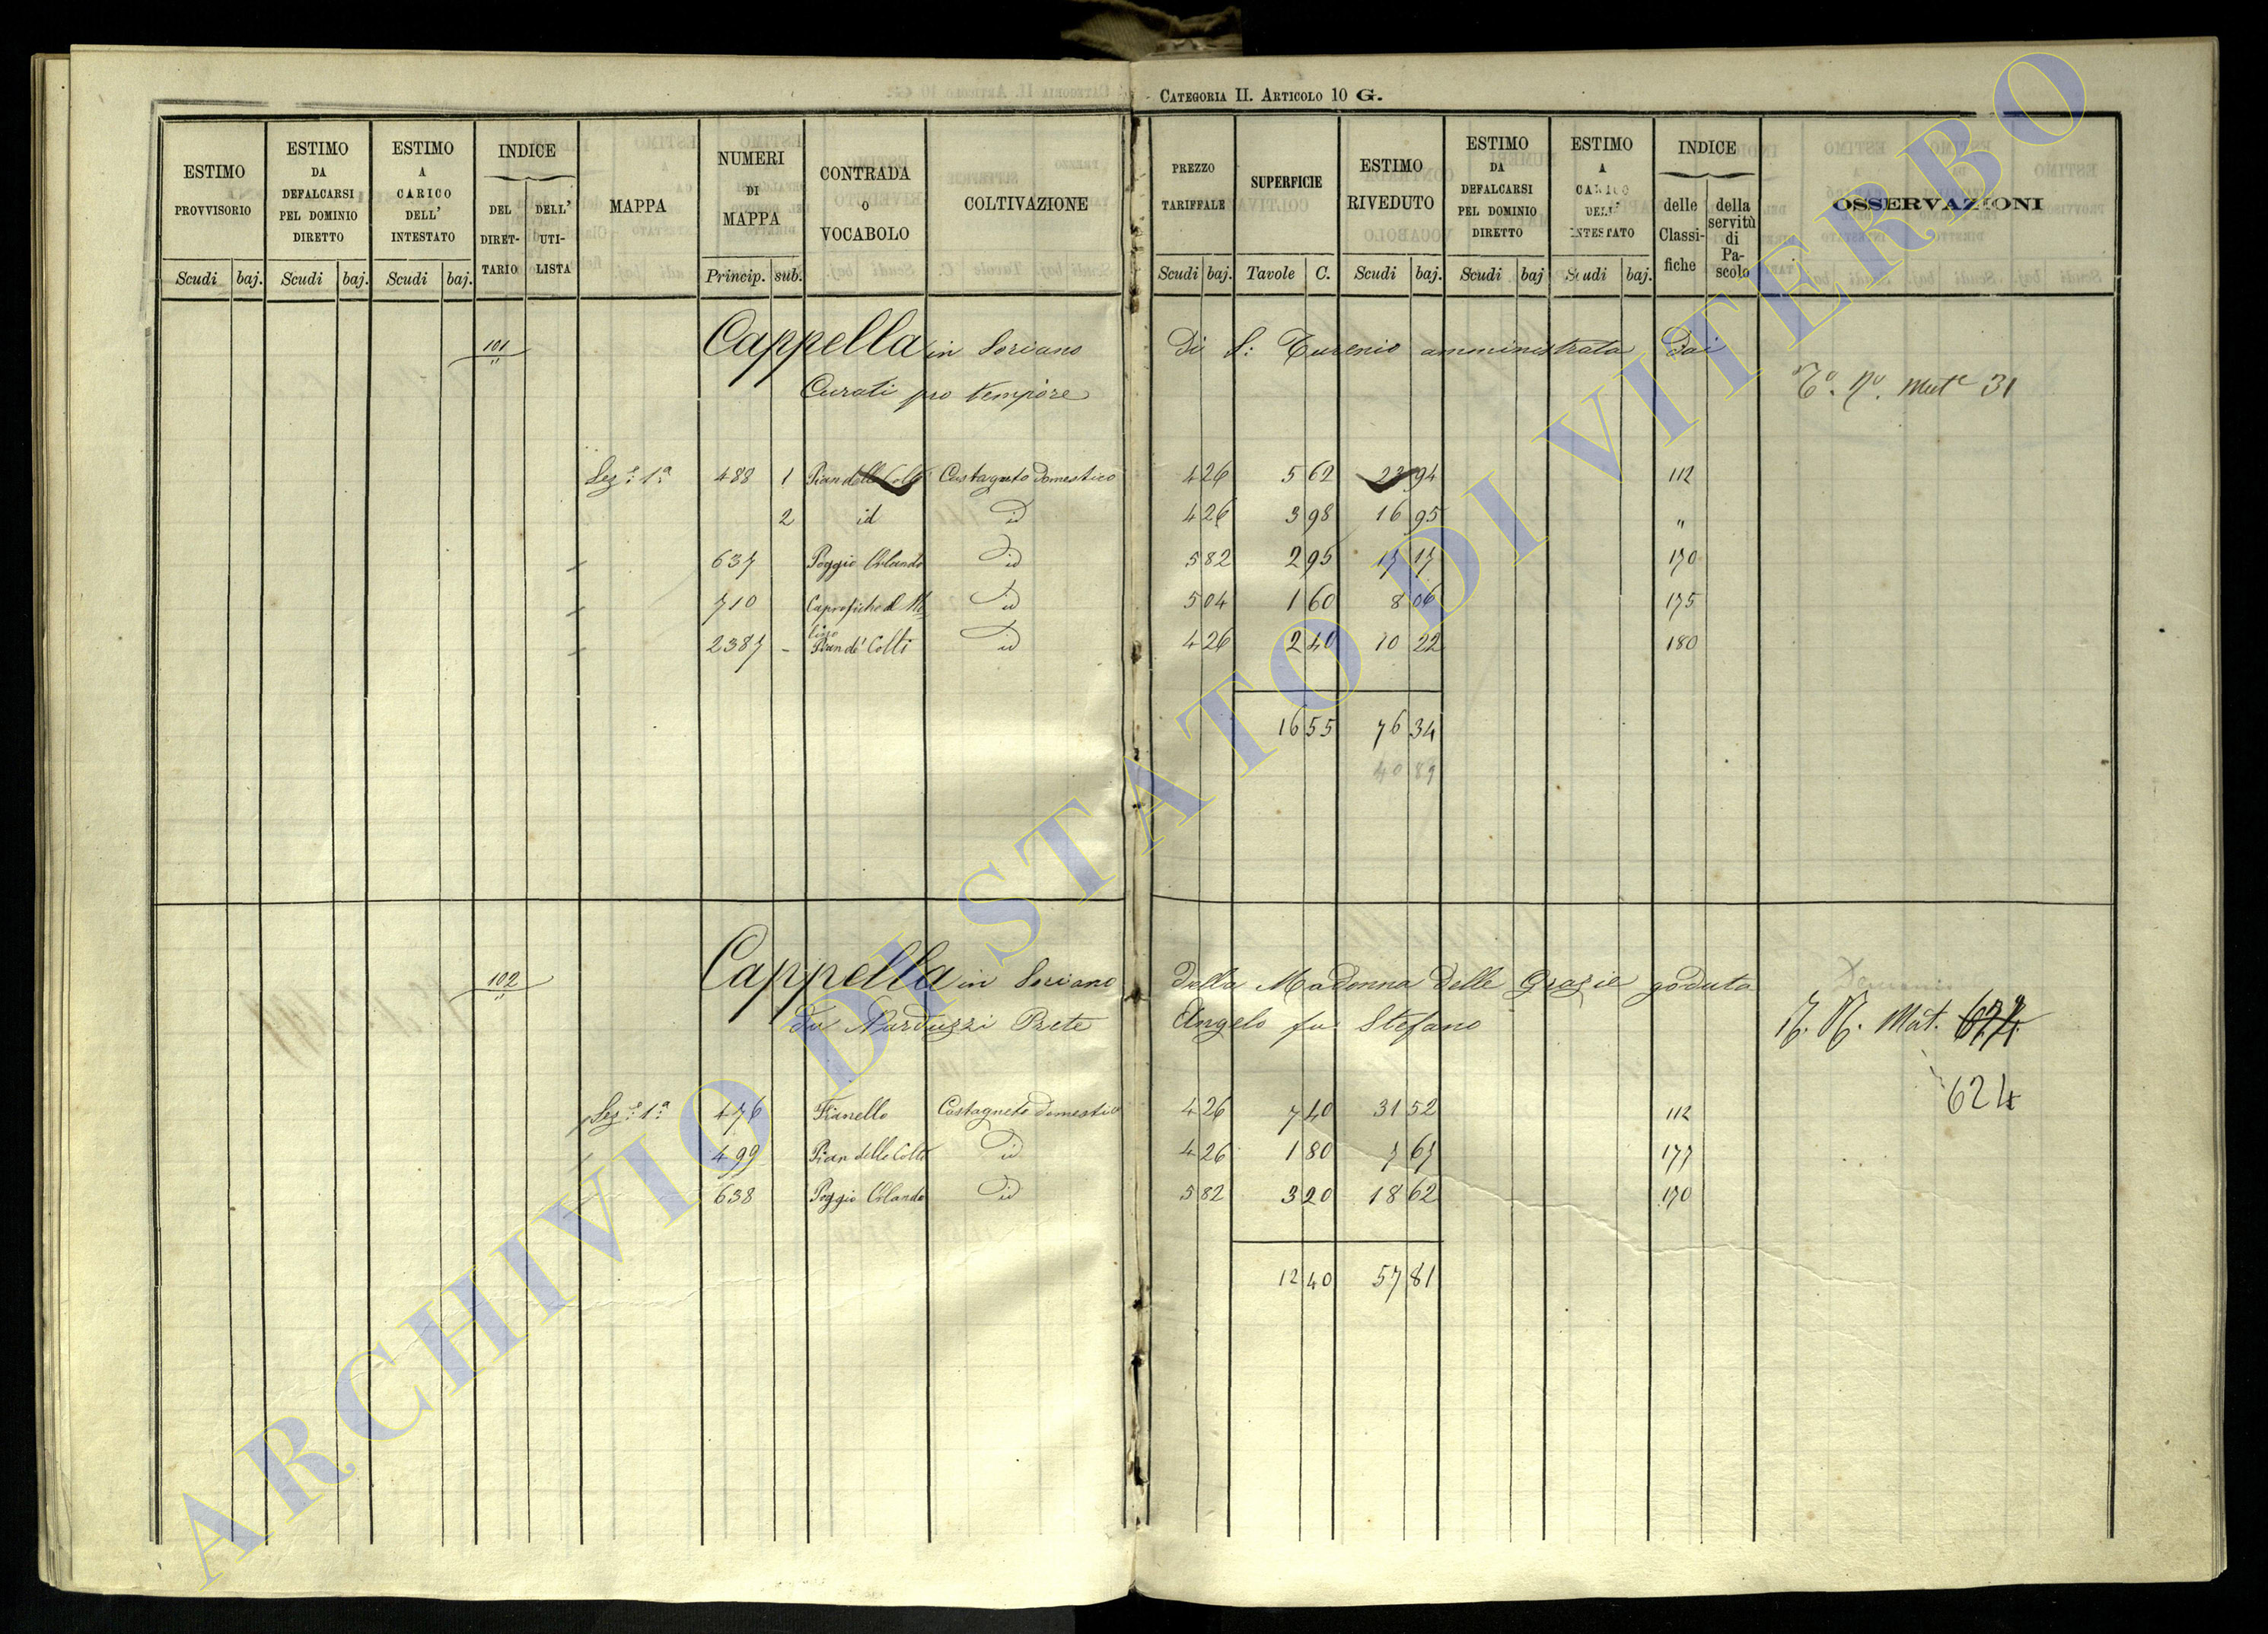 CATEGORIA II. ARTICOLO 10 G.
ESTIMO PROVVISORIO Scudi baj.
ESTIMO DA DEFALCARSI PEL DOMINIO DIRETTO Scudi baj.
ESTIMO A CARICO DELL' INTESTATO Scudi baj.
INDICE DEL DIRETTARIO DELL' UTILISTA
MAPPA
NUMERI DI MAPPA Princip. sub.
CONTRADA O VOCABOLO
COLTIVAZIONE
PREZZO TARIFFALE Scudi baj.
SUPERFICIE Tavole C.
ESTIMO RIVEDUTO Scudi baj.
ESTIMO DA DEFALCARSI PEL DOMINIO DIRETTO Scudi baj
ESTIMO A CARICO DELL' INTESTATO Scudi baj.
INDICE delle Classifiche della servitù di Pascolo
OSSERVAZIONI
101 Cappella in Soriano Di S: amministrata Dai
Curati pro tempore
Mut. 31
Sez.e 1a 488 1 Pian delle Colti Castagneto Domestico 4 26 5 62 23 94 112
2 id id 4 26 3 98 16 95 "
637 Poggio Orlando id 5 82 2 95 17 17 170
710 id 5 04 1 60 8 06 175
2387 - Pian de' Colti id 4 26 2 40 10 22 180
16 55 76 34
40 89
102 Cappella in Soriano Della Madonna Delle Grazie goduta
Da Narduzzi Prete Angelo fu Stefano
N. Mut. 624
624
Sez.e 1a 476 Fianello Castagneto Domestico 4 26 7 40 31 52 112
499 Pian delle Colti id 4 26 1 80 7 67 177
638 Poggio Orlando id 5 82 3 20 18 62 170
12 40 57 81
ARCHIVIO DI STATO DI VITERBO